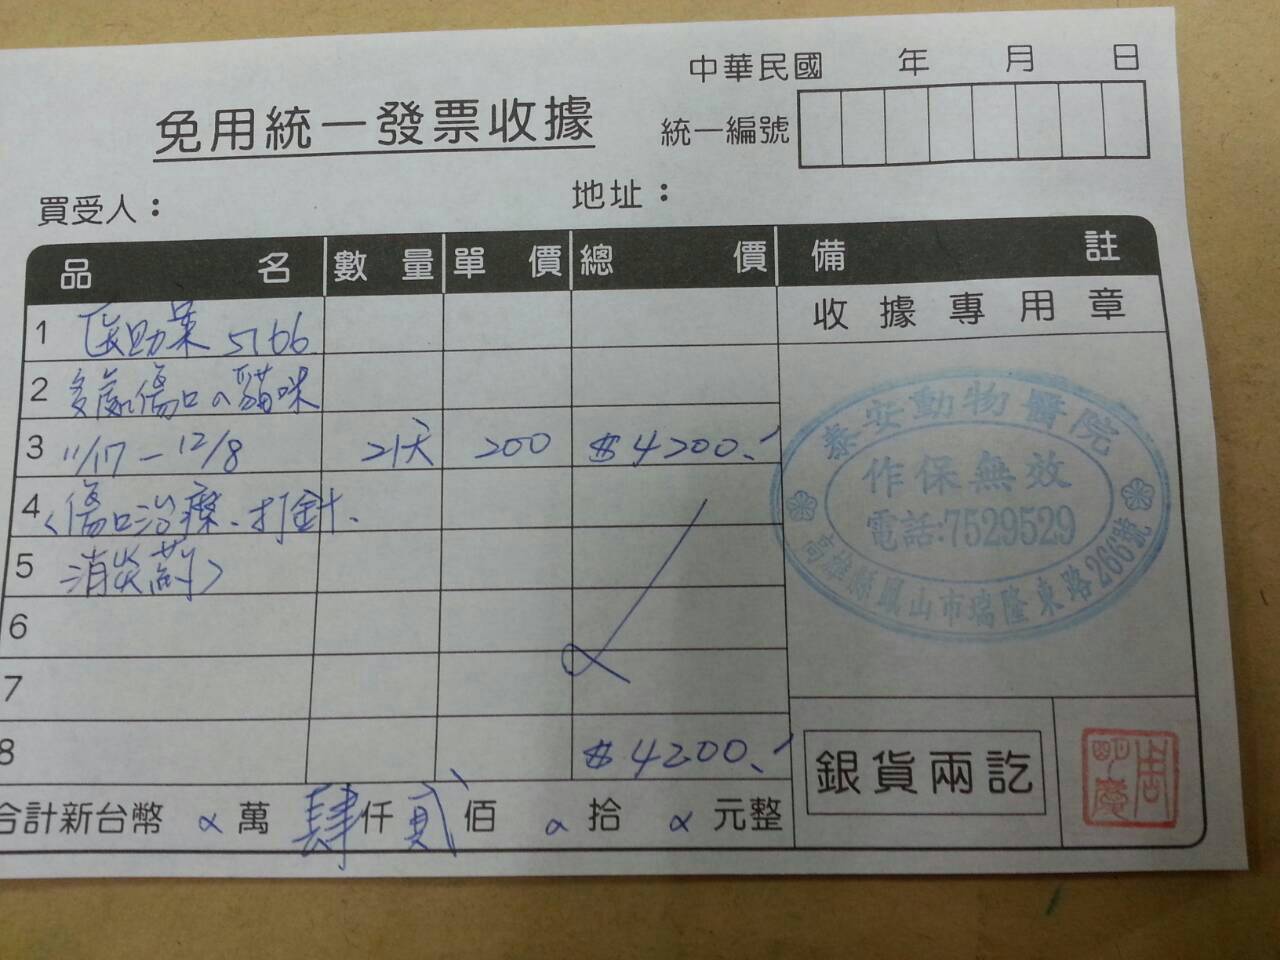 中華民國 年 月 日
免用統一發票收據
統一編號
買受人：
地址：
品名 數量 單價 總價 備註
收據專用章
1 醫助案 5166
2 多處傷口的貓咪
3 11/17-12/8 21天 200 $4200.
4 (傷口治療、打針、
5 消炎藥)
6
7
8 $4200.
泰安動物醫院
作保無效
電話:7529529
高雄縣鳳山市瑞隆東路266號
銀貨兩訖
合計新台幣 萬 肆仟貳佰 拾 元整